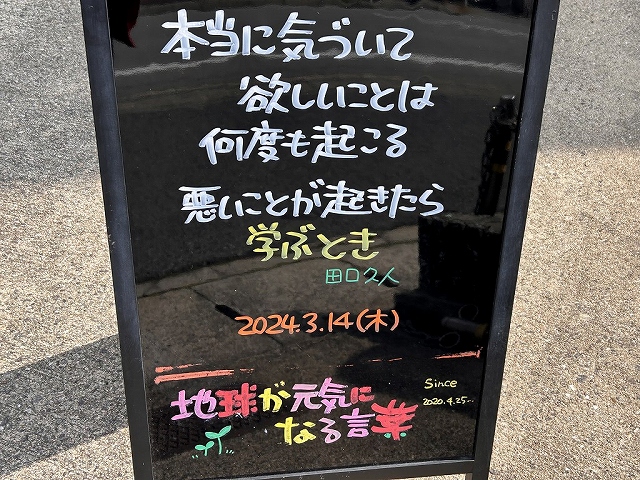 本当に気づいて
欲しいことは
何度も起こる
悪いことが起きたら
学ぶとき
田口久人
2024.3.14(木)
地球が元気に
なる言葉
Since
2020.4.25...